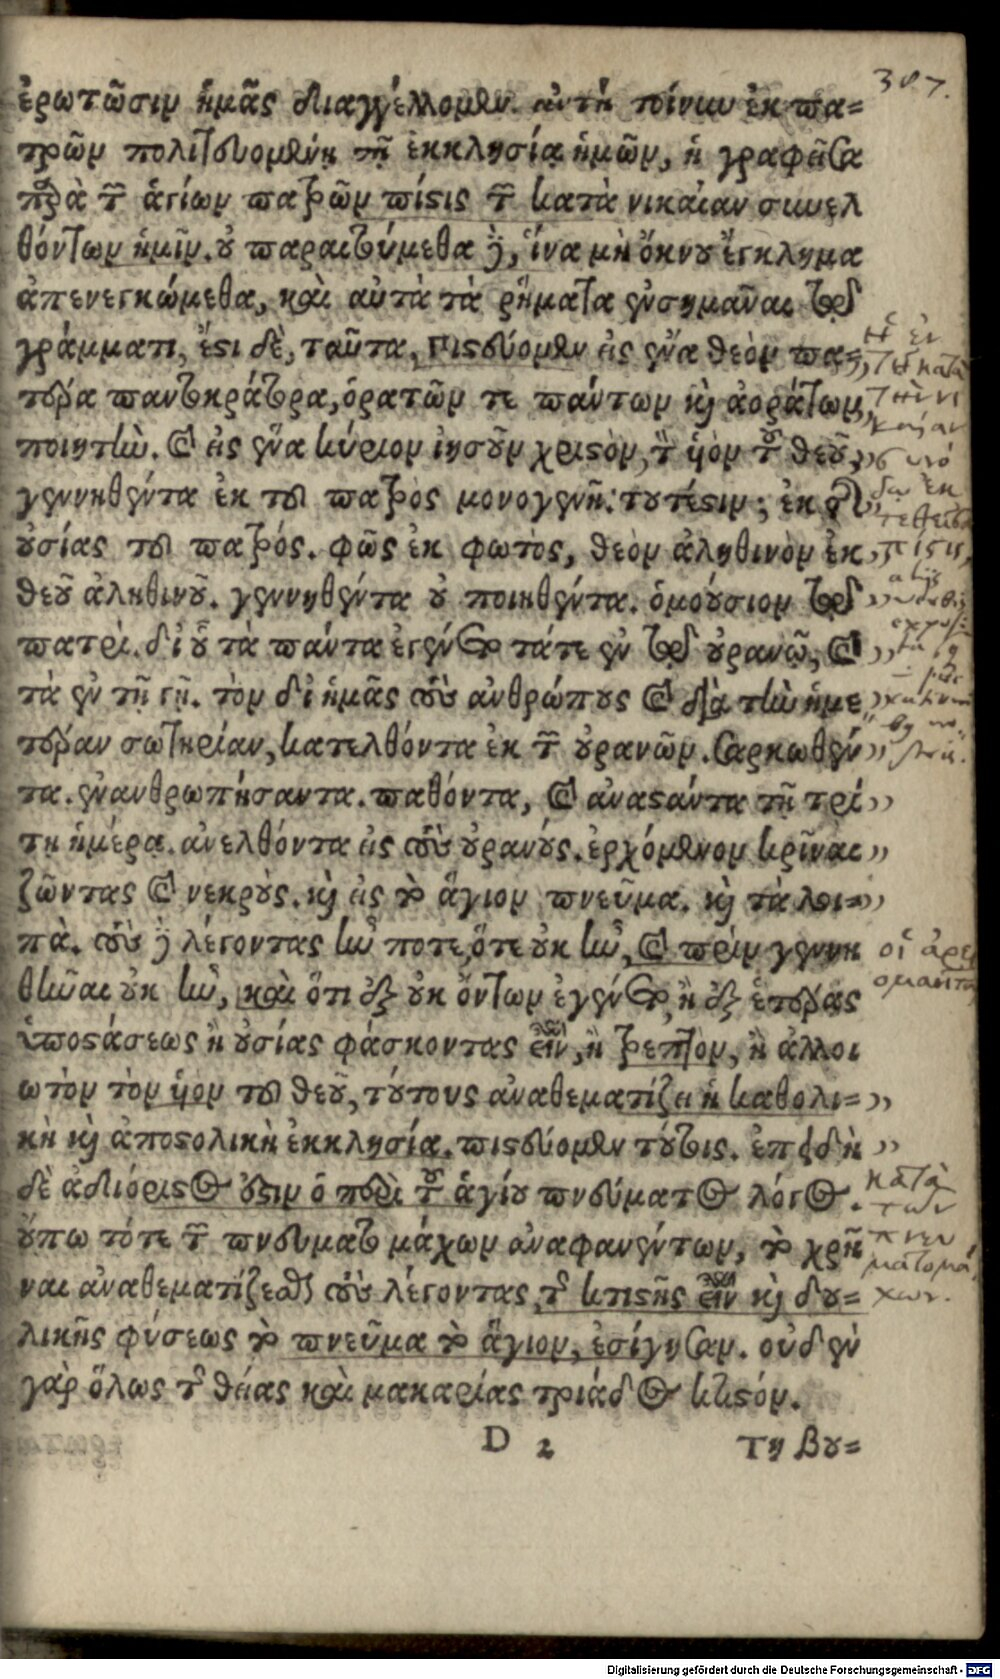 307.
ἐρωτῶσιν ἡμᾶς διαγγέλλομεν. αὐτὴ τοίνυν ἐκ πα=
τρῶν πολιτευομένη τῇ ἐκκλησίᾳ ἡμῶν, ἡ γραφεῖσα
παρὰ τῶν ἁγίων πατρῶν πίστις τῶν κατὰ νικαίαν συνελ
θόντων ἡμῖν. οὐ παραιτούμεθα δὲ, ἵνα μὴ ὄκνου ἔγκλημα
ἀπενεγκώμεθα, καὶ αὐτὰ τὰ ῥήματα ἐνσημᾶναι τῷ
γράμματι, ἔστι δὲ, ταῦτα, πιστεύομεν εἰς ἕνα θεὸν πα=
τέρα παντοκράτορα, ὁρατῶν τε πάντων καὶ ἀοράτων
ποιητὴν. καὶ εἰς ἕνα κύριον ἰησοῦν χριστὸν, τὸν υἱὸν τοῦ θεοῦ,
γεννηθέντα ἐκ τοῦ πατρὸς μονογενῆ: τουτέστιν; ἐκ τῆς
οὐσίας τοῦ πατρός. φῶς ἐκ φωτὸς, θεὸν ἀληθινὸν ἐκ
θεοῦ ἀληθινοῦ. γεννηθέντα οὐ ποιηθέντα. ὁμούσιον τῷ
πατρὶ. δι οὗ τὰ πάντα ἐγένετο τάτε ἐν τῷ οὐρανῷ, καὶ
τὰ ἐν τῇ γῇ. τὸν δι ἡμᾶς τοὺς ἀνθρώπους καὶ διὰ τὴν ἡμε
τέραν σωτηρίαν, κατελθόντα ἐκ τῶν οὐρανῶν. σαρκωθέν
τα. ἐνανθρωπήσαντα. παθόντα, καὶ ἀναστάντα τῇ τρί
τῃ ἡμέρᾳ. ἀνελθόντα εἰς τοὺς οὐρανούς. ἐρχόμενον κρῖναι
ζῶντας καὶ νεκρούς. καὶ εἰς τὸ ἅγιον πνεῦμα. καὶ τὰ λοι=
πὰ. τοὺς δὲ λέγοντας ἦν ποτε, ὅτε οὐκ ἦν, καὶ πρὶν γεννη
θῆναι οὐκ ἦν, καὶ ὅτι ἐξ οὐκ ὄντων ἐγένετο, ἢ ἐξ ἑτέρας
ὑποστάσεως ἢ οὐσίας φάσκοντας εἶναι, ἢ τρεπτὸν, ἢ ἀλλοι
ωτὸν τὸν υἱὸν τοῦ θεοῦ, τούτους ἀναθεματίζει ἡ καθολι=
κὴ καὶ ἀποστολικὴ ἐκκλησία. πιστεύομεν τούτοις. ἐπειδὴ
δὲ ἀδιόριστος οὗτιν ὁ περὶ τοῦ ἁγίου πνεύματος λόγος.
οὔπω τότε τῶν πνευματομάχων ἀναφανέντων, τὸ χρῆ
ναι ἀναθεματίζεσθαι τοὺς λέγοντας, τῆς κτιστῆς εἶναι καὶ δου=
λικῆς φύσεως τὸ πνεῦμα τὸ ἅγιον, ἐσίγησαν. οὐδ ἐν
γὰρ ὅλως τῆς θείας καὶ μακαρίας τριάδος κτιστόν.
D 2 τη βου=
ἡ ἐν
τῇ κατὰ
τὴν νι
καίαν
συνό
δῳ ἐκ
τεθεῖσα
πίστις,
κατὰ
τῶν
πνευ
ματομά
χων.